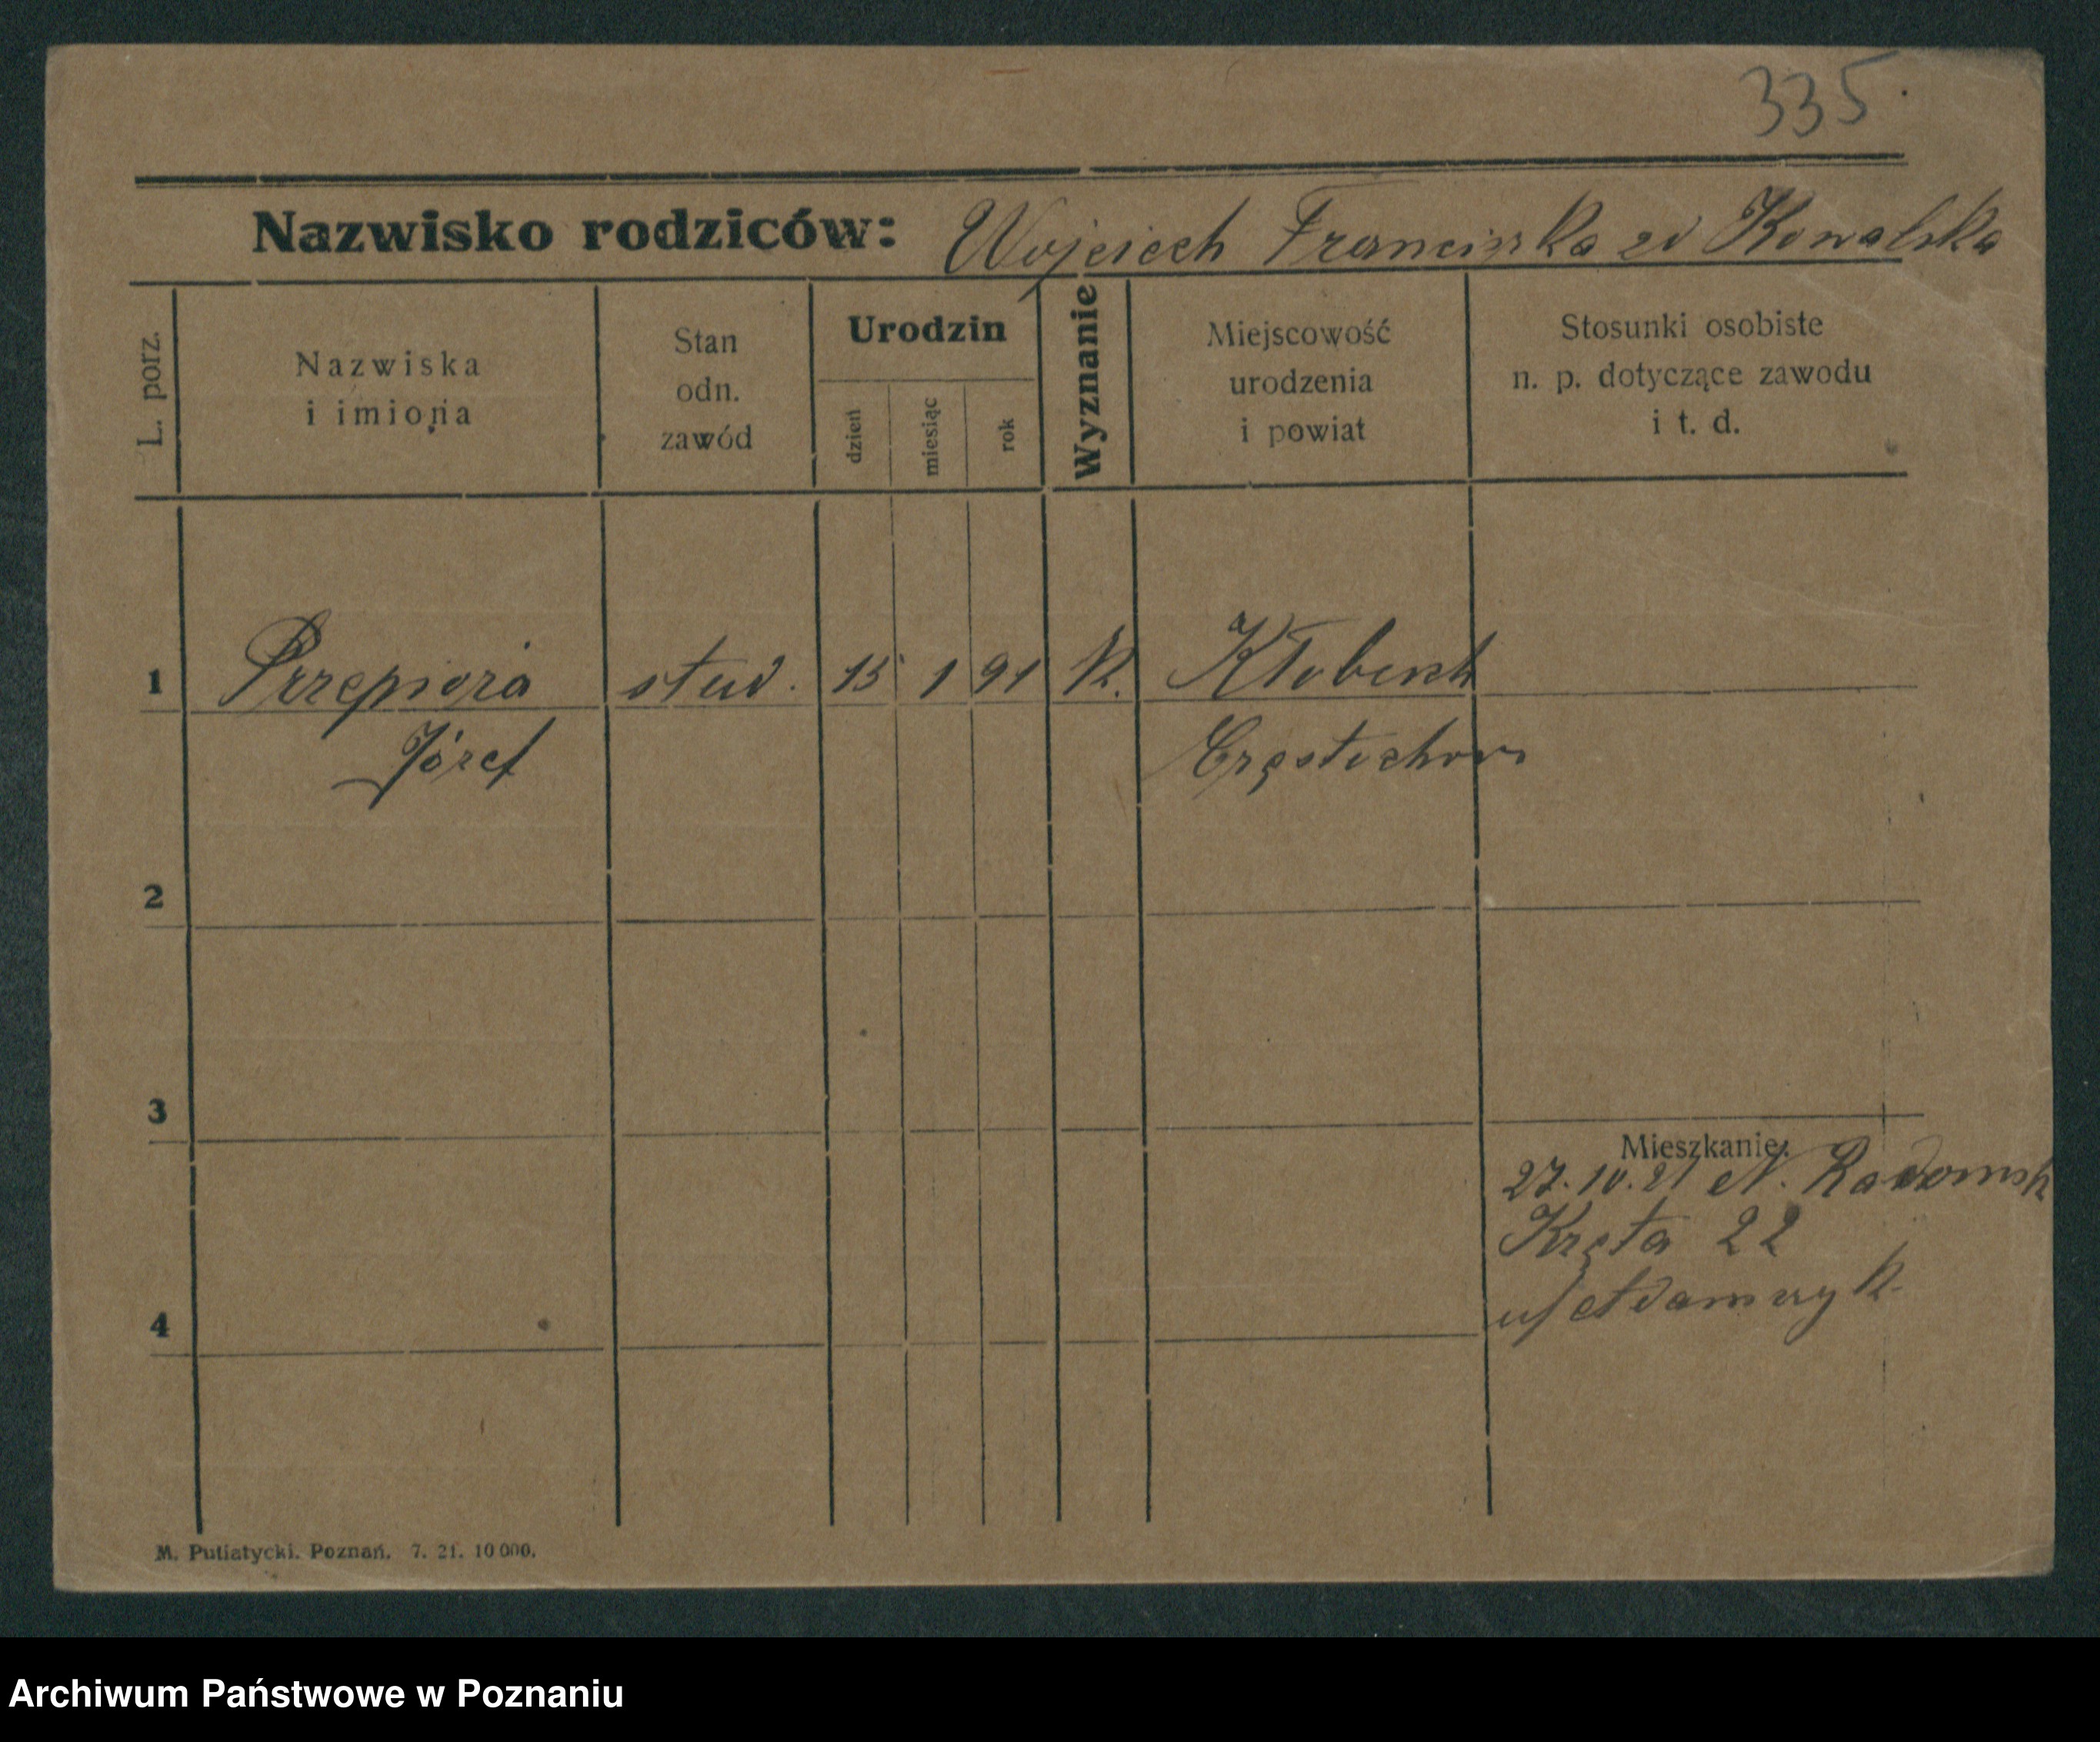 335.
Nazwisko rodziców: Wojciech Franciszka zd Kowalska
L. porz.
Nazwiska
i imiona
Stan
odn.
zawód
Urodzin
dzień
miesiąc
rok
Wyznanie
Miejscowość
urodzenia
i powiat
Stosunki osobiste
n. p. dotyczące zawodu
i t. d.
1 Przepiora stud. 15 1 91 K.
Józef Częstochow
2
3
Mieszkanie:
27.10.21 N. Radomsk
Kręta 22
u/Adamczyk
4
M. Putiatycki. Poznań. 7. 21. 10 000.
Archiwum Państwowe w Poznaniu